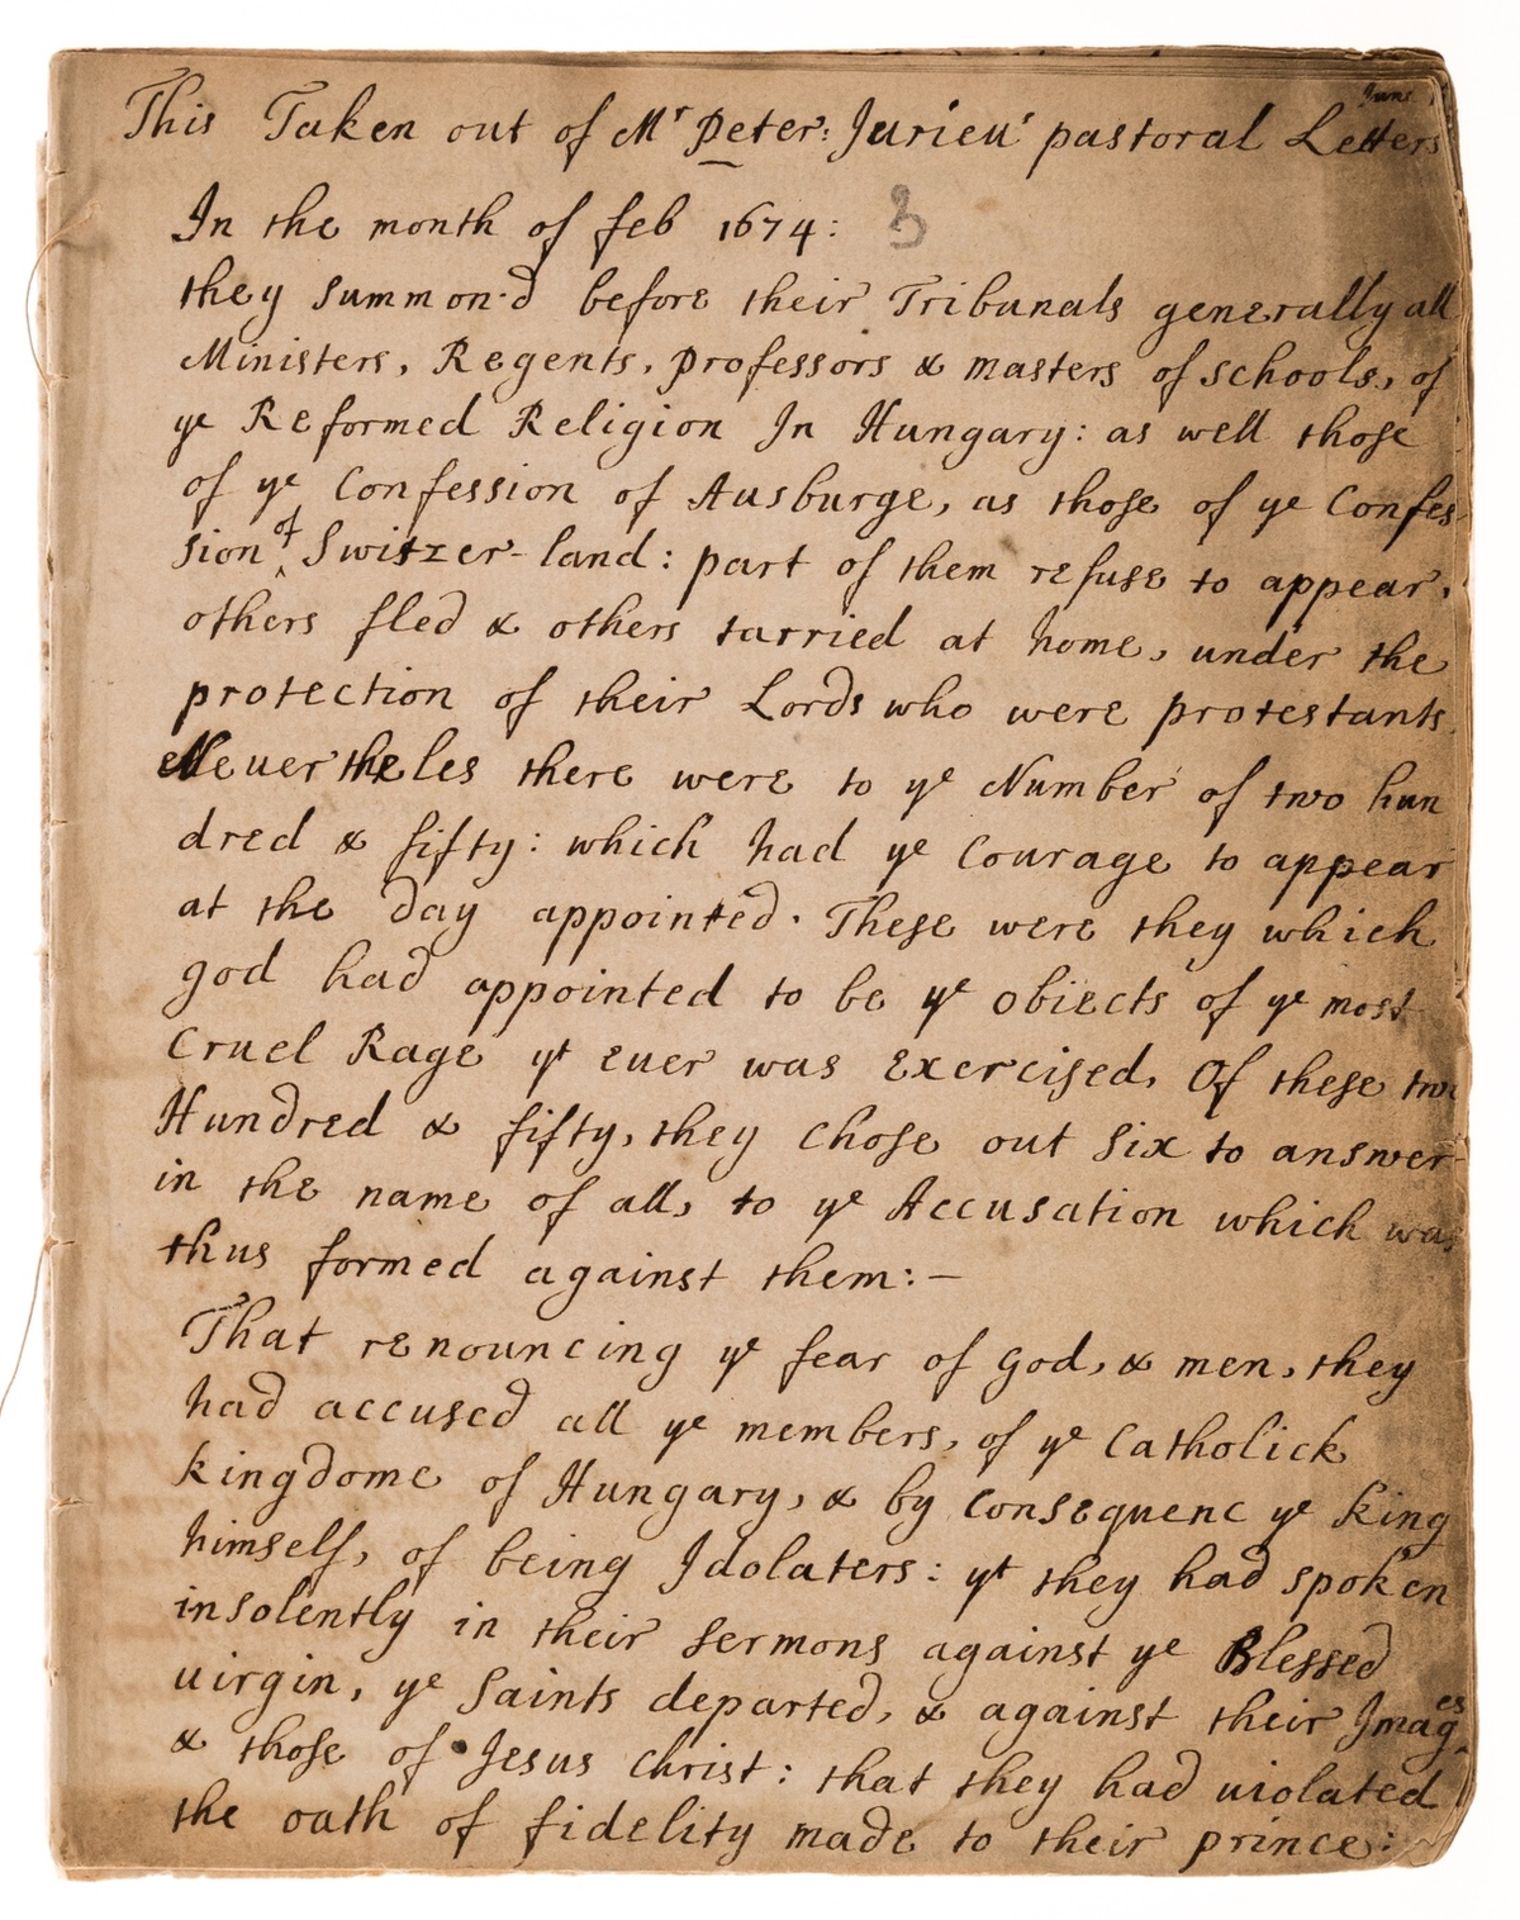 This Taken out of Mr Peter: Jurieu's pastoral Letters
In the month of feb 1674: 3
they summon'd before their Tribunals generally all
Ministers, Regents, professors & masters of schools, of
ye Reformed Religion In Hungary: as well those
of ye Confession of Ausburge, as those of ye Confes-
sion of Switzer-land: part of them refuse to appear,
others fled & others tarried at home, under the
protection of their Lords who were protestants.
Neuertheles there were to ye Number of two hun
dred & fifty: which had ye Courage to appear
at the day appointed. These were they which
god had appointed to be ye obiects of ye most
Cruel Rage yt euer was exercised, Of these two
Hundred & fifty, they chose out six to answer
in the name of all, to ye Accusation which was
thus formed against them:—
That renouncing ye fear of god, & men, they
had accused all ye members, of ye Catholick
kingdome of Hungary, & by consequenc ye king
himself, of being Idolaters: yt they had spoken
insolently in their sermons against ye Blessed
uirgin, ye Saints departed, & against their Images
& those of Jesus christ: that they had uiolated
the oath of fidelity made to their prince: